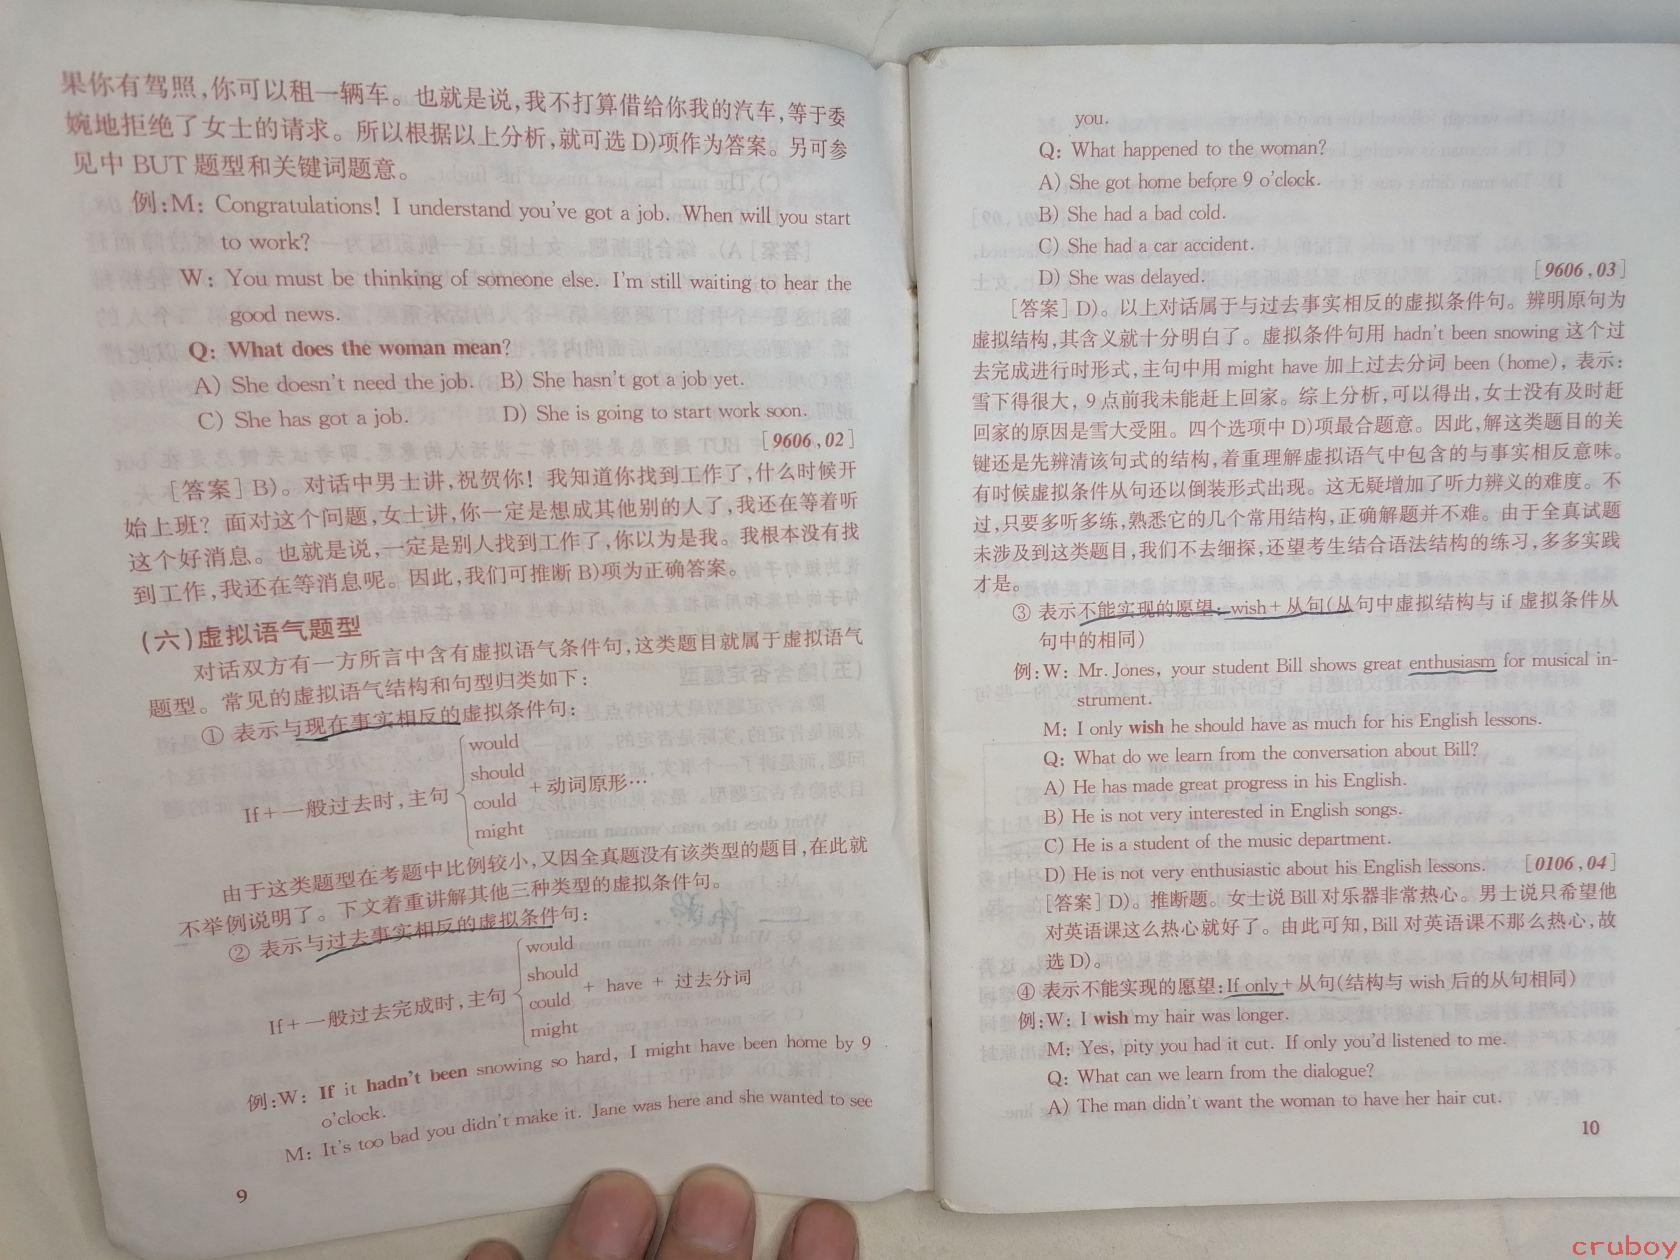 果你有驾照,你可以租一辆车。也就是说,我不打算借给你我的汽车,等于委
婉地拒绝了女士的请求。所以根据以上分析,就可选 D)项作为答案。另可参
见中 BUT 题型和关键词题意。
例:M: Congratulations! I understand you've got a job. When will you start
to work?
W: You must be thinking of someone else. I'm still waiting to hear the
good news.
Q: What does the woman mean?
A) She doesn't need the job. B) She hasn't got a job yet.
C) She has got a job. D) She is going to start work soon.
[9606,02]
[答案] B)。对话中男士讲,祝贺你! 我知道你找到工作了,什么时候开
始上班? 面对这个问题,女士讲,你一定是想成其他别的人了,我还在等着听
这个好消息。也就是说,一定是别人找到工作了,你以为是我。我根本没有找
到工作,我还在等消息呢。因此,我们可推断 B)项为正确答案。
(六)虚拟语气题型
对话双方有一方所言中含有虚拟语气条件句,这类题目就属于虚拟语气
题型。常见的虚拟语气结构和句型归类如下:
① 表示与现在事实相反的虚拟条件句:
would
should
If+一般过去时,主句 could +动词原形…
might
由于这类题型在考题中比例较小,又因全真题没有该类型的题目,在此就
不举例说明了。下文着重讲解其他三种类型的虚拟条件句。
② 表示与过去事实相反的虚拟条件句:
would
should
If+一般过去完成时,主句 could + have + 过去分词
might
例:W: If it hadn't been snowing so hard, I might have been home by 9
o'clock.
M: It's too bad you didn't make it. Jane was here and she wanted to see
9
you.
Q: What happened to the woman?
A) She got home before 9 o'clock.
B) She had a bad cold.
C) She had a car accident.
D) She was delayed. [9606,03]
[答案] D)。以上对话属于与过去事实相反的虚拟条件句。辨明原句为
虚拟结构,其含义就十分明白了。虚拟条件句用 hadn't been snowing 这个过
去完成进行时形式,主句中用 might have 加上过去分词 been (home), 表示:
雪下得很大, 9 点前我未能赶上回家。综上分析,可以得出,女士没有及时赶
回家的原因是雪大受阻。四个选项中 D)项最合题意。因此,解这类题目的关
键还是先辨清该句式的结构,着重理解虚拟语气中包含的与事实相反意味。
有时候虚拟条件从句还以倒装形式出现。这无疑增加了听力辨义的难度。不
过,只要多听多练,熟悉它的几个常用结构,正确解题并不难。由于全真试题
未涉及到这类题目,我们不去细探,还望考生结合语法结构的练习,多多实践
才是。
③ 表示不能实现的愿望:wish+从句(从句中虚拟结构与 if 虚拟条件从
句中的相同)
例:W: Mr. Jones, your student Bill shows great enthusiasm for musical in-
strument.
M: I only wish he should have as much for his English lessons.
Q: What do we learn from the conversation about Bill?
A) He has made great progress in his English.
B) He is not very interested in English songs.
C) He is a student of the music department.
D) He is not very enthusiastic about his English lessons. [0106,04]
[答案] D)。推断题。女士说 Bill 对乐器非常热心。男士说只希望他
对英语课这么热心就好了。由此可知,Bill 对英语课不那么热心,故
选 D)。
④ 表示不能实现的愿望:If only+从句(结构与 wish 后的从句相同)
例:W: I wish my hair was longer.
M: Yes, pity you had it cut. If only you'd listened to me.
Q: What can we learn from the dialogue?
A) The man didn't want the woman to have her hair cut.
10
cruboy